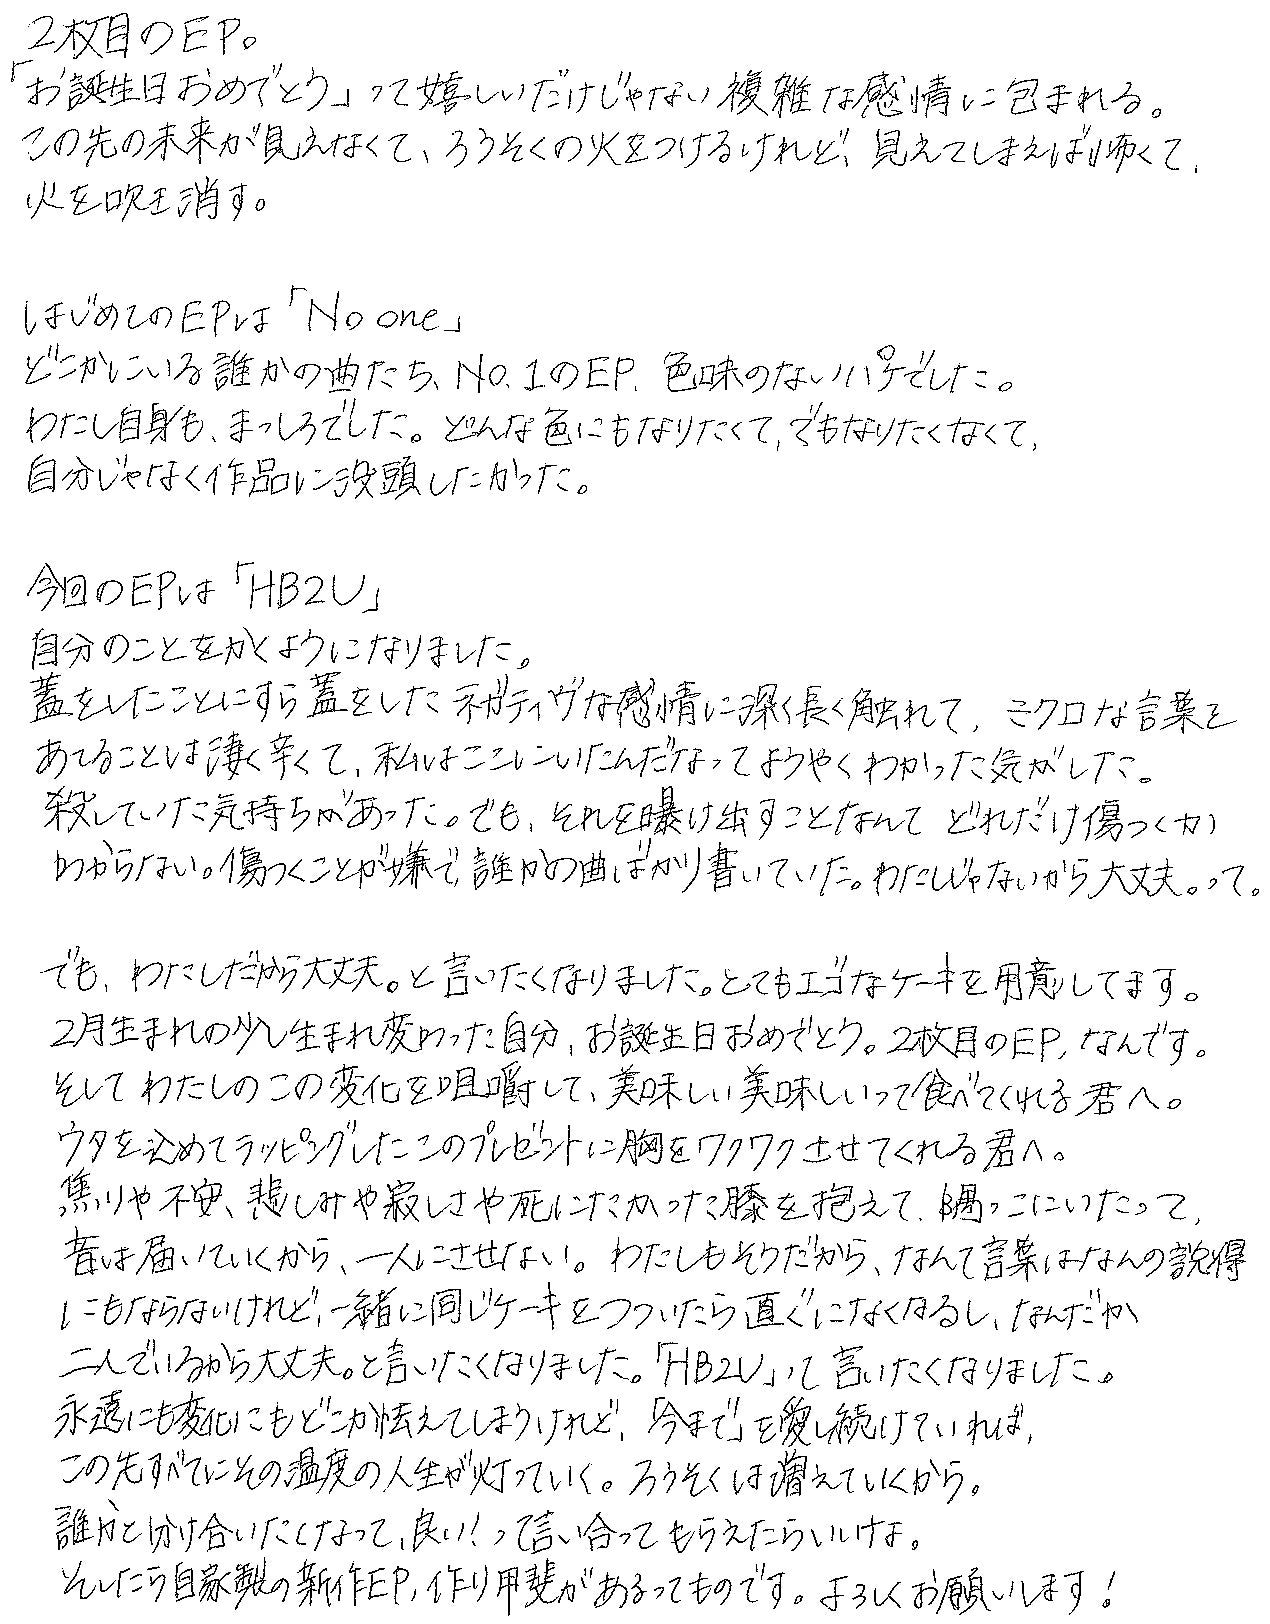 2枚目のEP。
「お誕生日おめでとう」って嬉しいだけじゃない複雑な感情に包まれる。
この先の未来が見えなくて、ろうそくの火をつけるけれど、見えてしまえば怖くて、
火を吹き消す。
はじめてのEPは「No one」
どこかにいる誰かの曲たち、No.1のEP、色味のないパケでした。
わたし自身も、まっしろでした。どんな色にもなりたくて、でもなりたくなくて、
自分じゃなく作品に没頭したかった。
今回のEPは「HB2U」
自分のことをかくようになりました。
蓋をしたことにすら蓋をしたネガティヴな感情に深く長く触れて、ミクロな言葉を
あてることは凄く辛くて、私はここにいたんだなってようやくわかった気がした。
殺していた気持ちがあった。でも、それを曝け出すことなんてどれだけ傷つくか
わからない。傷つくことが嫌で、誰かの曲ばかり書いていた。わたしじゃないから大丈夫。って。
でも、わたしだから大丈夫。と言いたくなりました。とてもエゴなケーキを用意してます。
2月生まれの少し生まれ変わった自分、お誕生日おめでとう。2枚目のEP、なんです。
そしてわたしのこの変化を咀嚼して、美味しい美味しいって食べてくれる君へ。
ウタを込めてラッピングしたこのプレゼントに胸をワクワクさせてくれる君へ。
焦りや不安、悲しみや寂しさや死にたかった膝を抱えて、隅っこにいたって、
音は届いていくから、一人にさせない!わたしもそうだから、なんて言葉はなんの説得
にもならないけれど、一緒に同じケーキをつついたら直ぐになくなるし、なんだか
二人でいるから大丈夫。と言いたくなりました。「HB2U」って言いたくなりました。
永遠にも変化にもどこか怯えてしまうけれど、「今まで」を愛し続けていれば、
この先すべてにその温度の人生が灯っていく。ろうそくは増えていくから。
誰かと分け合いたくなって、良い!って言い合ってもらえたらいいけな。
そしたら自家製の新作EP、作り甲斐があるってものです。よろしくお願いします!